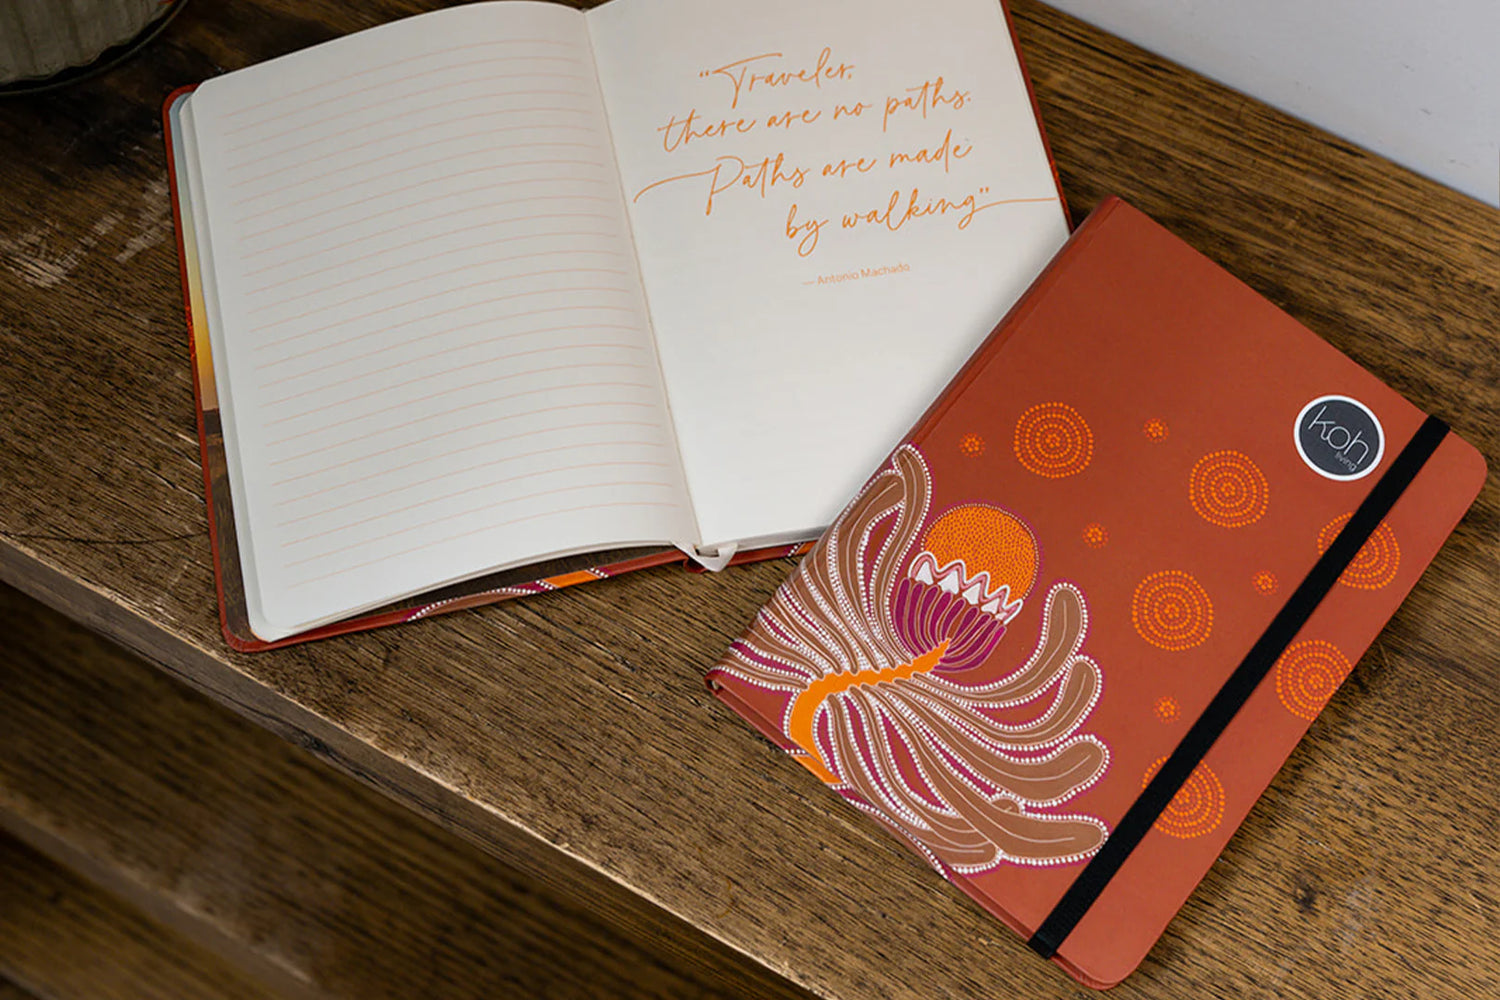 “Traveler,
there are no paths.
Paths are made
by walking”
— Antonio Machado
koh
living